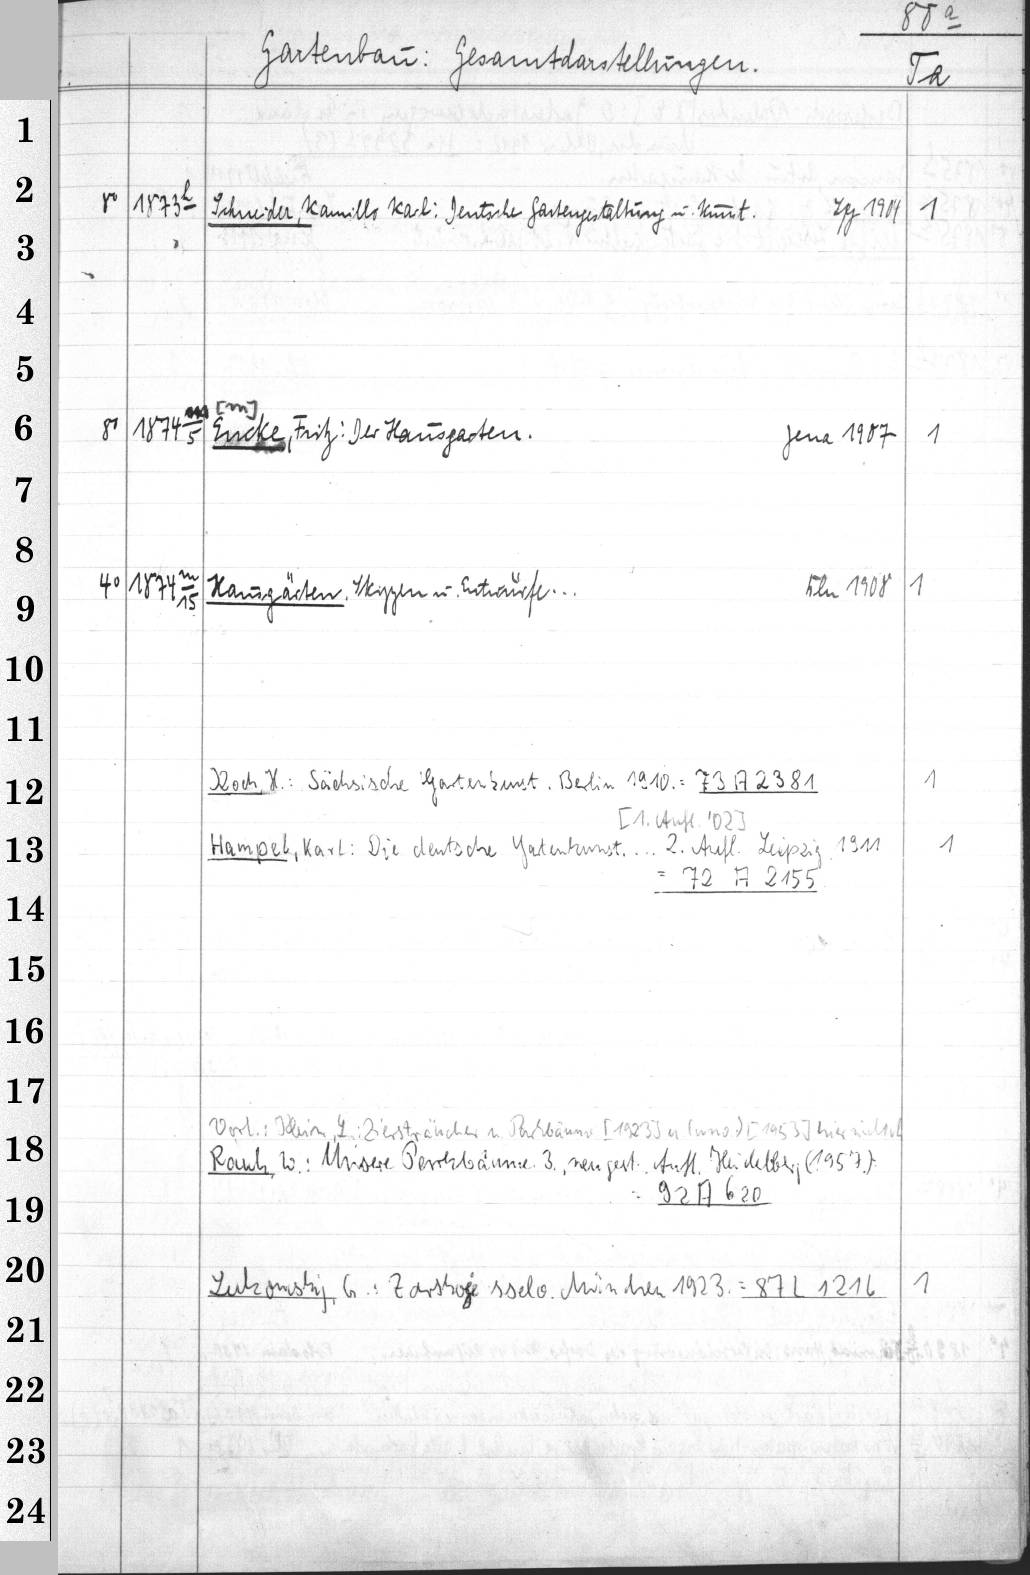 88 a
Gartenbau: Gesamtdarstellungen.
Ta
1
2
8° 1873 l Schneider, Kamillo Karl: Deutsche Gartengestaltung u. Kunst. Lpz 1904 1
3
4
5
[m]
6
8° 1874 m/5 Encke, Fritz: Der Hausgarten. Jena 1907 1
7
8
4° 1874 m/15 Hausgärten. Skizzen u. Entwürfe... Bln 1908 1
9
10
11
12
Koch, H.: Sächsische Gartenkunst. Berlin 1910. = 73 A 2381 1
[1. Aufl. '02]
13
Hampel, Karl: Die deutsche Gatenkunst. ... 2. Aufl. Leipzig 1911 1
= 72 A 2155
14
15
16
17
Vorl.: Klein, L.: Ziersträucher u. Parkbäume [1923] u [1953] hier
18
Rauh, W.: Unsere Parkbäume. 3., neugest. Aufl. Heidelberg (1957).
= 92 A 620
19
20
Lukomskij, G.: Zarskoje sselo. München 1923. = 87 L 1216 1
21
22
23
24